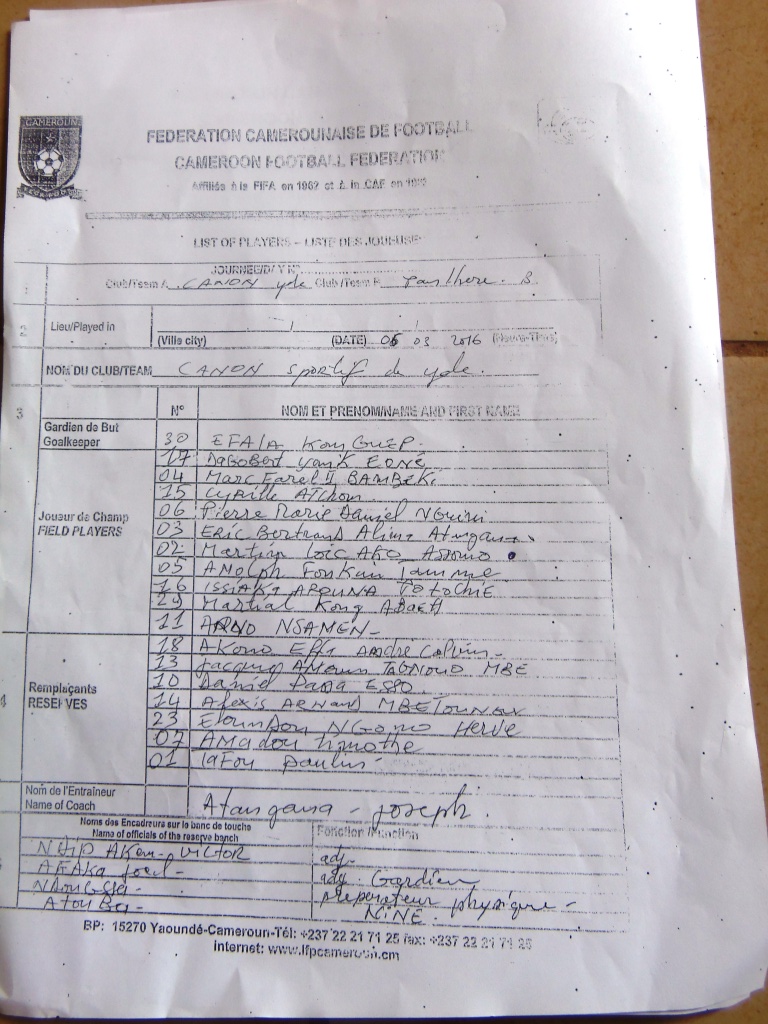 CAMEROUN
FEDERATION CAMEROUNAISE DE FOOTBALL
CAMEROON FOOTBALL FEDERATION
Affiliés à la FIFA en 1962 et à la CAF en
LIST OF PLAYERS - LISTE DES JOUEUSE
JOURNEE/DAY N°
Club/Team A CANON yde Club/Team B Panthere. B
Lieu/Played in
(Ville city) (DATE) 06 03 2016
NOM DU CLUB/TEAM CANON sportif de yde.
3 N° NOM ET PRENOM/NAME AND FIRST NAME
Gardien de But
Goalkeeper 30 EFALA Konguep.
17 Dagobert yanik EONE
04 Marc Farel II BAMBEKI
15 Cyrille Atchon
Joueur de Champ 06 Pierre Marie Daniel Nguini
FIELD PLAYERS 03 ERIC Bertrand Alima Atangana
02 Martin Loic ABO Asomo
05 Adolph Fonkain Tamme
16 ISSIAKA AROUNA
29 Martial Kong
11 ARNO NSAMEN-
18 Akono Effa André Calvin-
13 Jacques TAGNOUO MBE
Remplaçants 10 Daniel Papa ESSO
RESERVES 14 Alexis ARNAUD
23 Eloundou NGONO Herve
07 AMadou Timothe
01 Lafou paulin-
Nom de l'Entraîneur
Name of Coach Atangana - Joseph.
Noms des Encadreurs sur le banc de touche Fonction /Function
Name of officials of the reserve bench
VICTOR adj-
AFAKA Joel- adj. Gardien
préparateur physique -
KINE.
BP: 15270 Yaoundé-Cameroun-Tél: +237 22 21 71 25 fax: +237 22 21 71 25
internet: www.lfpcameroun.cm